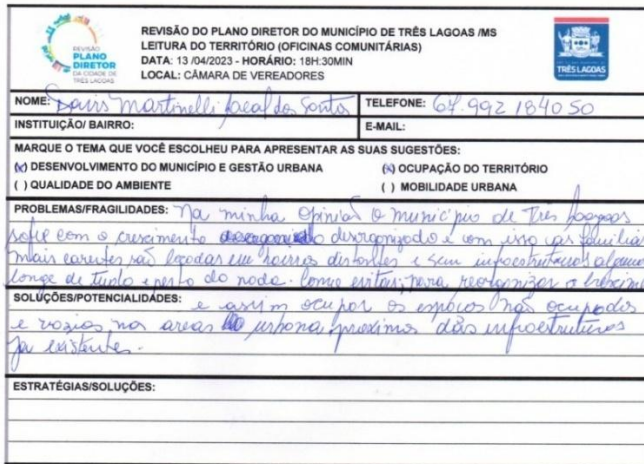 REVISÃO DO PLANO DIRETOR DO MUNICÍPIO DE TRÊS LAGOAS /MS
LEITURA DO TERRITÓRIO (OFICINAS COMUNITÁRIAS)
DATA: 13 /04/2023 - HORÁRIO: 18H:30MIN
LOCAL: CÂMARA DE VEREADORES
REVISÃO
PLANO
DIRETOR
DA CIDADE DE
TRÊS LAGOAS
TRÊS LAGOAS
NOME: Martinelli Leal dos Santos TELEFONE: 67.992184050
INSTITUIÇÃO/ BAIRRO: E-MAIL:
MARQUE O TEMA QUE VOCÊ ESCOLHEU PARA APRESENTAR AS SUAS SUGESTÕES:
(x) DESENVOLVIMENTO DO MUNICÍPIO E GESTÃO URBANA (x) OCUPAÇÃO DO TERRITÓRIO
( ) QUALIDADE DO AMBIENTE ( ) MOBILIDADE URBANA
PROBLEMAS/FRAGILIDADES: Na minha opinião o município de Três Lagoas
sofre com o crescimento desorganizado e com isso as familias
mais carentes são locadas em bairros distantes e sem infraestruturas alguma
longe de tudo e perto do nada. Como evitar; para reorganizar o
SOLUÇÕES/POTENCIALIDADES: e assim ocupar os espaços não ocupados
e vazios nas areas urbana proximos das infraestruturas
ja existentes.
ESTRATÉGIAS/SOLUÇÕES: